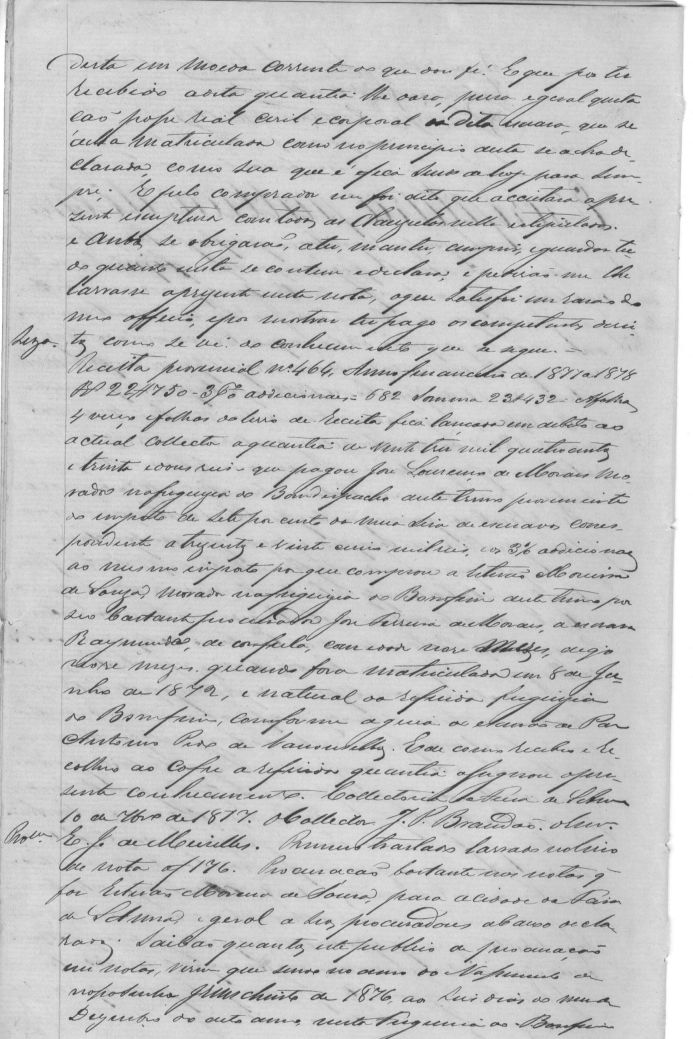 desta em moeda corrente do que dou fé. E que por ter
recebido a esta quantia lhe dava, plena e geral quita
ção posse real civil e corporal da dita escrava, que se
acha matriculada como no principio desta se acha de
clarada, como sua que é e fica sendo de hoje para sem
pre. E pelo comprador me foi dito que acceitava a pre
sente escriptura com todas as clausulas nella estipuladas.
e ambos se obrigarão, a ter, manter, cumprir, e guardar tu
do quanto nesta se contem e declara, e pedirão me lhe
lavrasse a presente nesta nota, o que satisfiz em razão do
meu officio, e por mostrar ter pago os competentes direi
Siza. tos como se vê do conhecimento que se segue. =
Receita provincial nº 464. Anno financeiro de 1877 a 1878
22$750 - 3% addicionaes - 682 Somma 23$432
4 verso folhas do livro de Receita fica lançado em debito ao
actual collector a quantia de vinte tres mil quatrocentos
e trinta e dous reis que pagou José Lourenço de Morais mo
rador na freguezia do deste termo proveniente
do imposto de sete por cento da meia siza de escravos corres
pondente a trezentos e vinte cinco mil reis, e os 3% addicionaes
ao mesmo imposto por que comprou a Estevão Moreira
de Souza, morador na freguezia do Bomfim deste termo por
seo bastante procurador José Pereira de Morais, a escrava
Raymunda, de cor fula, com idade nove mezes, digo
nove mezes, quando fora matriculada em 8 de Ju
nho de 1872, e natural da referida freguezia
do Bomfim, conforme a guia do escrivão de Paz
Antonio Pedro de Vasconcellos. E de como recebeo e re
colheo ao Cofre a referida quantia assignou o pre
sente conhecimento. Collectoria da Feira de
10 de 7bro de 1877. O Collector J. P. Brandão. O Escr.
Procçm. E. J. de Meirelles. Primeiro traslado lavrado no livro
de nota a f 176. Procuração bastante nas notas q
faz Estevão Moreira de Souza, para a cidade da Feira
de e geral a seos procuradores abaixo decla
rados. Saibão quantos este publico de procuração
em notas, virem que sendo no anno do Nascimento de
nosso Senhor Jesus Christo de 1876, aos seis dias do mez de
Dezembro do dito anno, nesta Freguezia do Bomfim